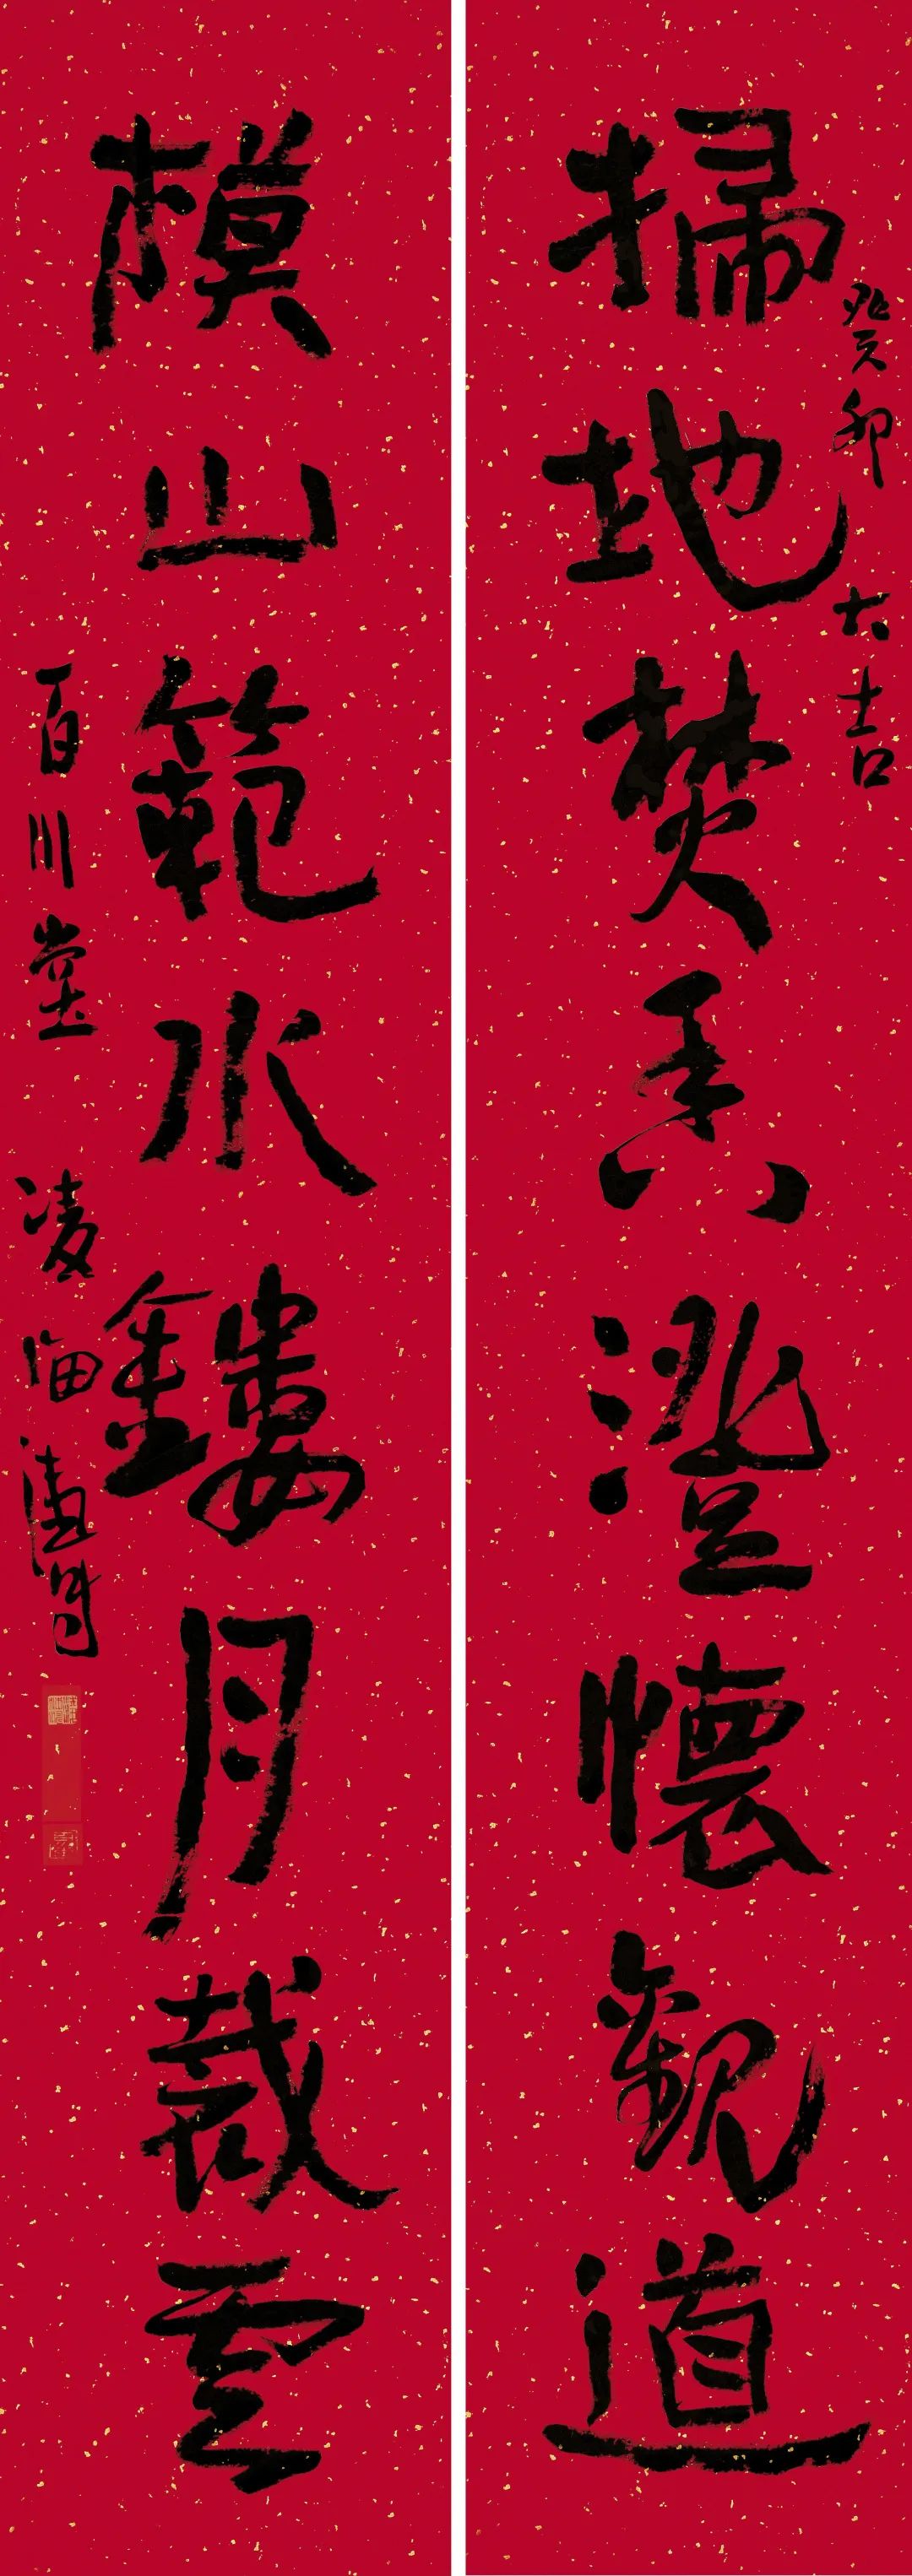 掃地焚香澄懷觀道
癸卯大吉
模山範水鏤月裁雲
百川堂凌海濤書